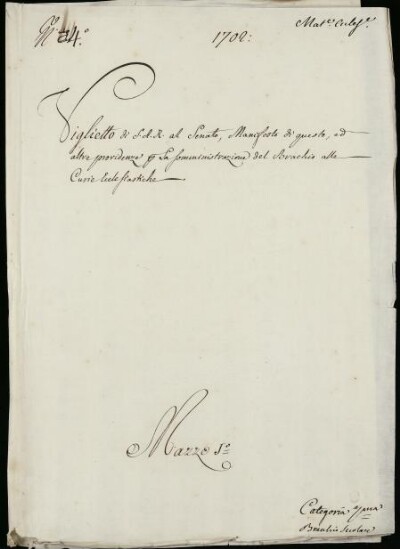 N.° 24.°
1702:
Mat.e Eccles.e
Viglietto di S.A.R. al Senato, Manifesto di questo, ed
altre providenze per la somministrazione del Bracchio alle
Curie Ecclesiastiche
Mazzo 1.°
Categoria
Bracchio Secolare